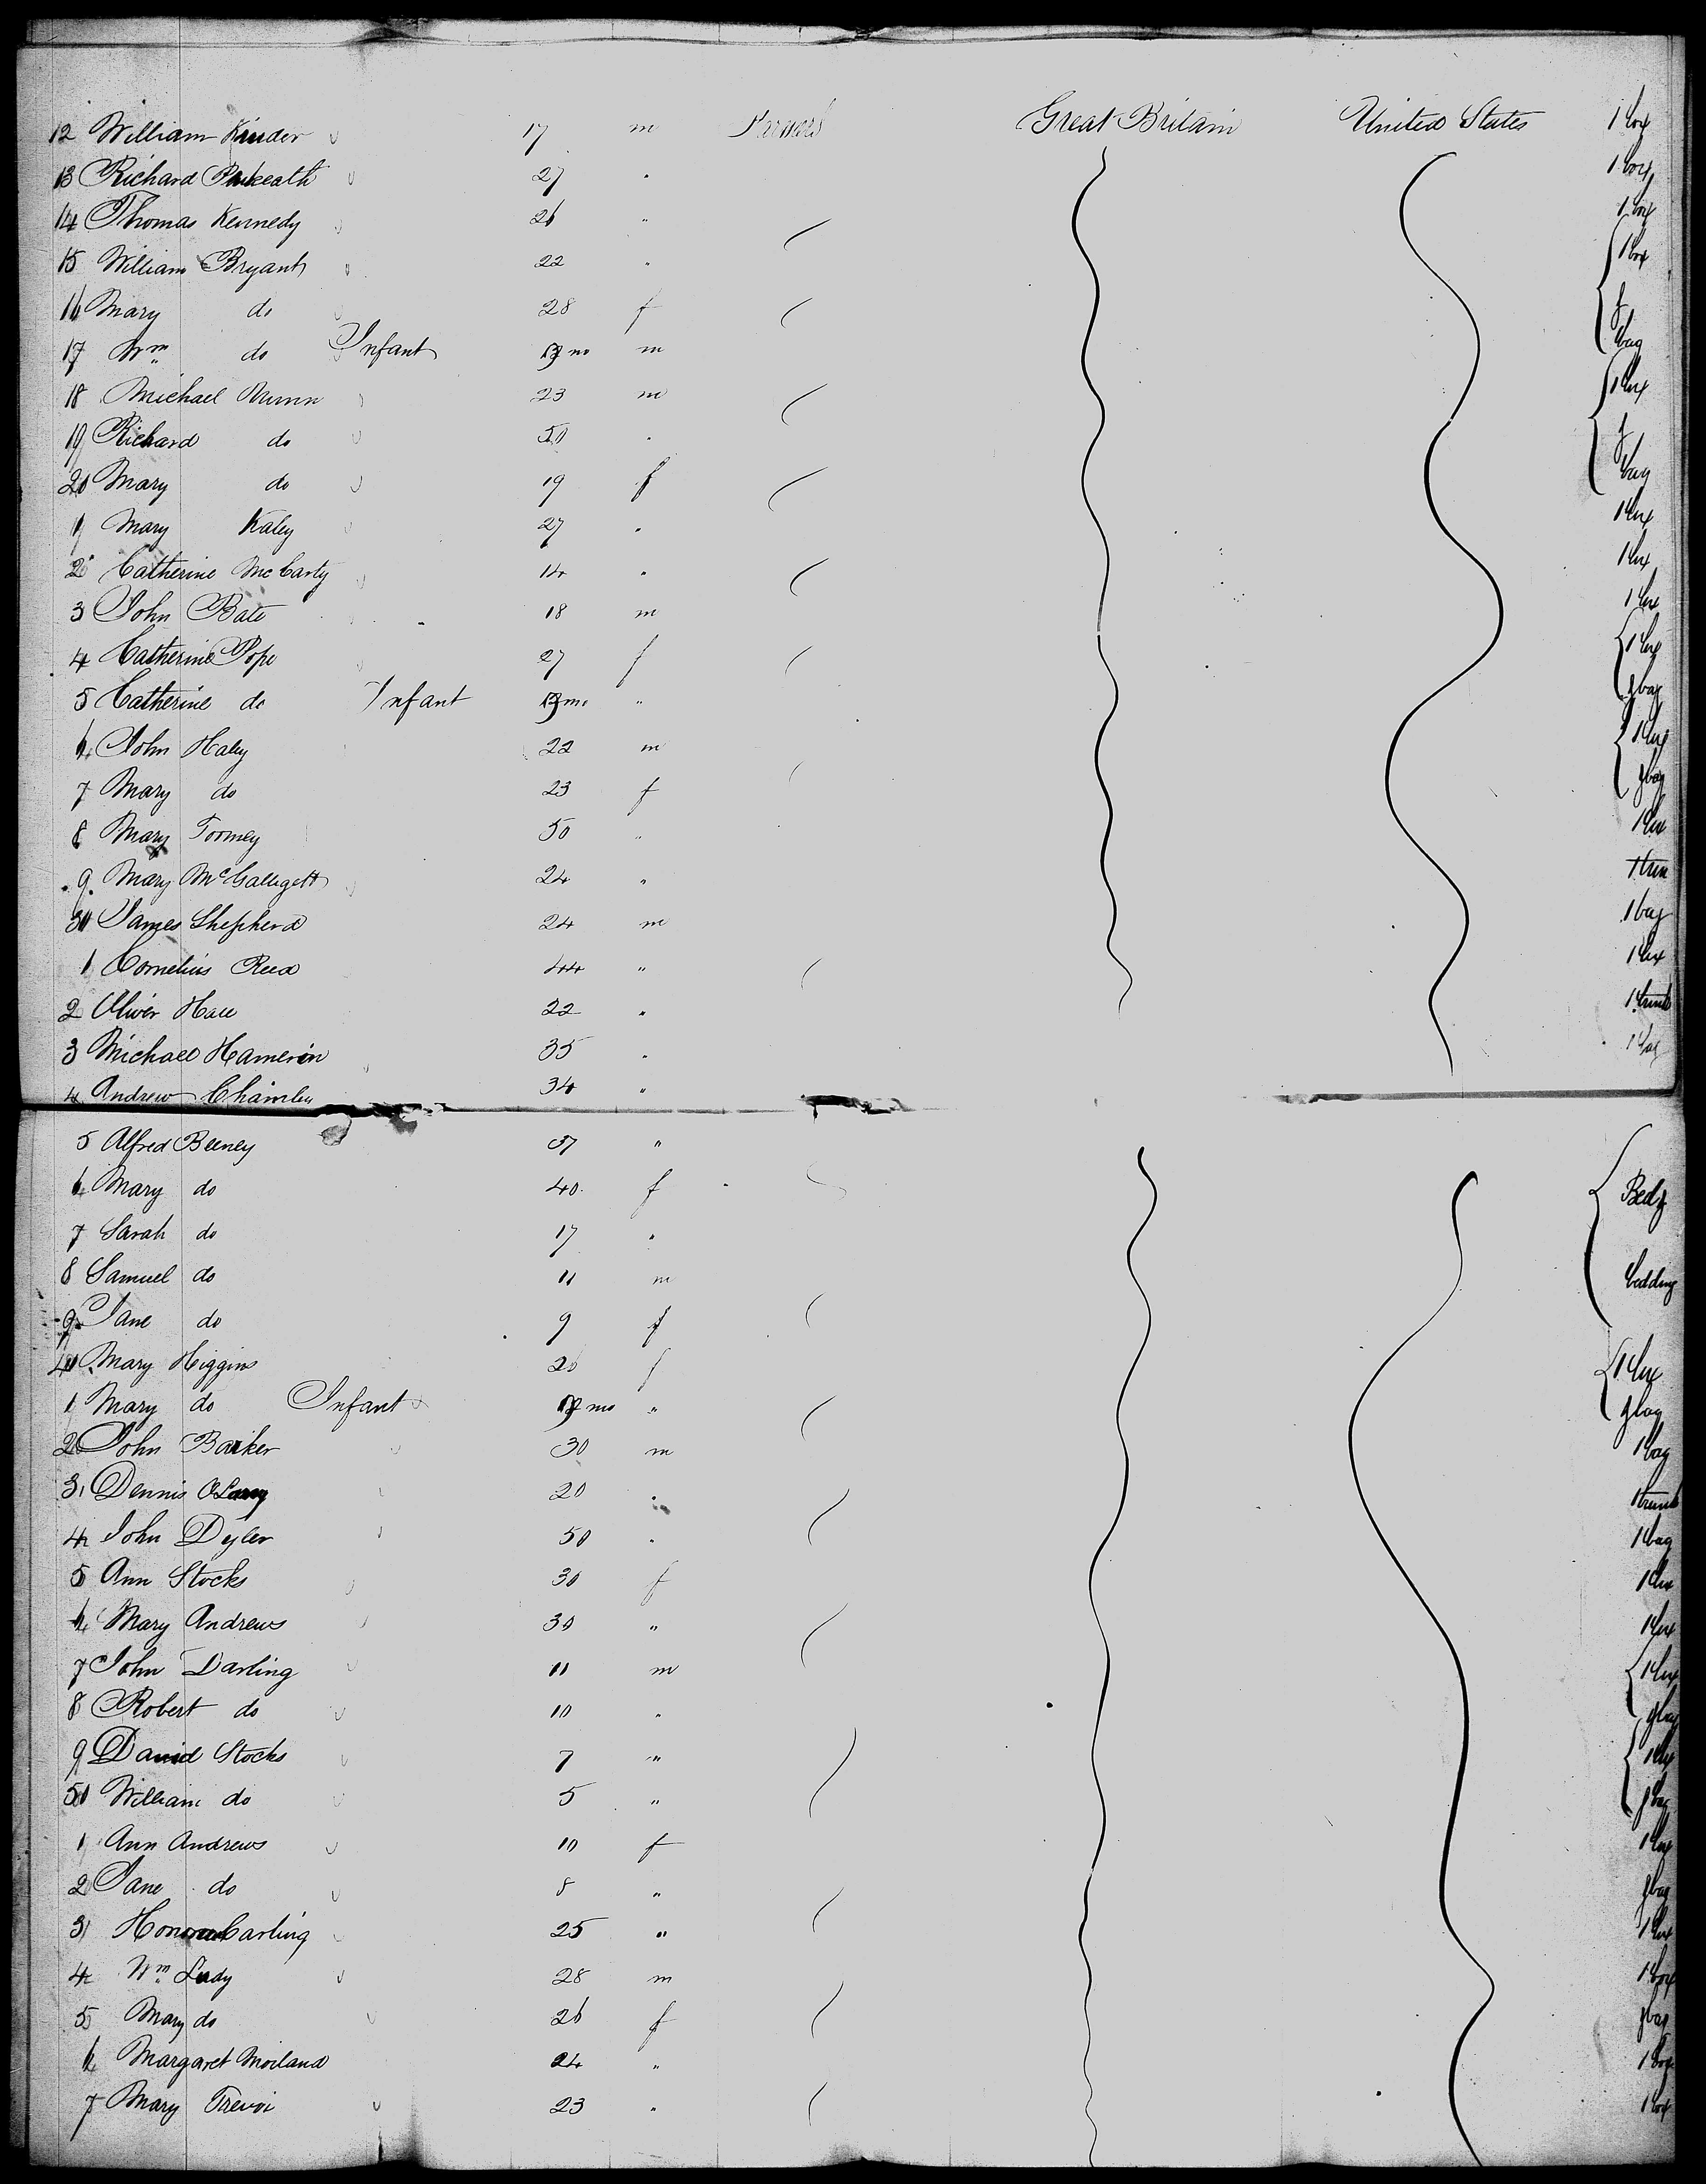 12 William Kinder 17 m Great Britain United States 1 box
13 Richard 27 " 1 box
14 Thomas Kennedy 26 " 1 box
15 William Bryant 22 " 1 box
16 Mary do 28 f &
17 Wm do Infant mo m bag
18 Michael Nunn 23 m 1 box
19 Richard do 50 " &
20 Mary do 19 f bag
1 Mary Kaley 27 " 1 box
2 Catherine McCarty 14 " 1 box
3 John Bate 18 m 1 box
4 Catherine Pope 27 f 1 box
5 Catherine do Infant mo " & bag
6 John Haley 22 m 1 box
7 Mary do 23 f & bag
8 Mary Toomey 50 " 1 box
9 Mary 24 "
30 James Shepherd 24 m 1 bag
1 Cornelius Reed 44 " 1 box
2 Oliver Hall 22 " 1 trunk
3 Michael Hameron 35 " 1 bag
4 Andrew 34 "
5 Alfred Beeney 37 "
6 Mary do 40 f Bed &
7 Sarah do 17 "
8 Samuel do 11 m bedding
9 Jane do 9 f
40 Mary Higgins 26 f 1 box
1 Mary do Infant mo " & bag
2 John Barker 30 m 1 bag
3 Dennis OLarry 20 " 1 trunk
4 John Dyler 50 " 1 bag
5 Ann Stocks 30 f 1 box
6 Mary Andrews 30 " 1 box
7 John Darling 11 m 1 box
8 Robert do 10 " & bag
9 David Stocks 7 " 1 box
50 William do 5 " & bag
1 Ann Andrews 10 f 1 box
2 Jane do 8 " & bag
3 Carling 25 " 1 box
4 Wm Lady 28 m 1 box
5 Mary do 26 f & bag
6 Margaret Moiland 24 " 1 box
7 Mary Trevoi 23 " 1 box